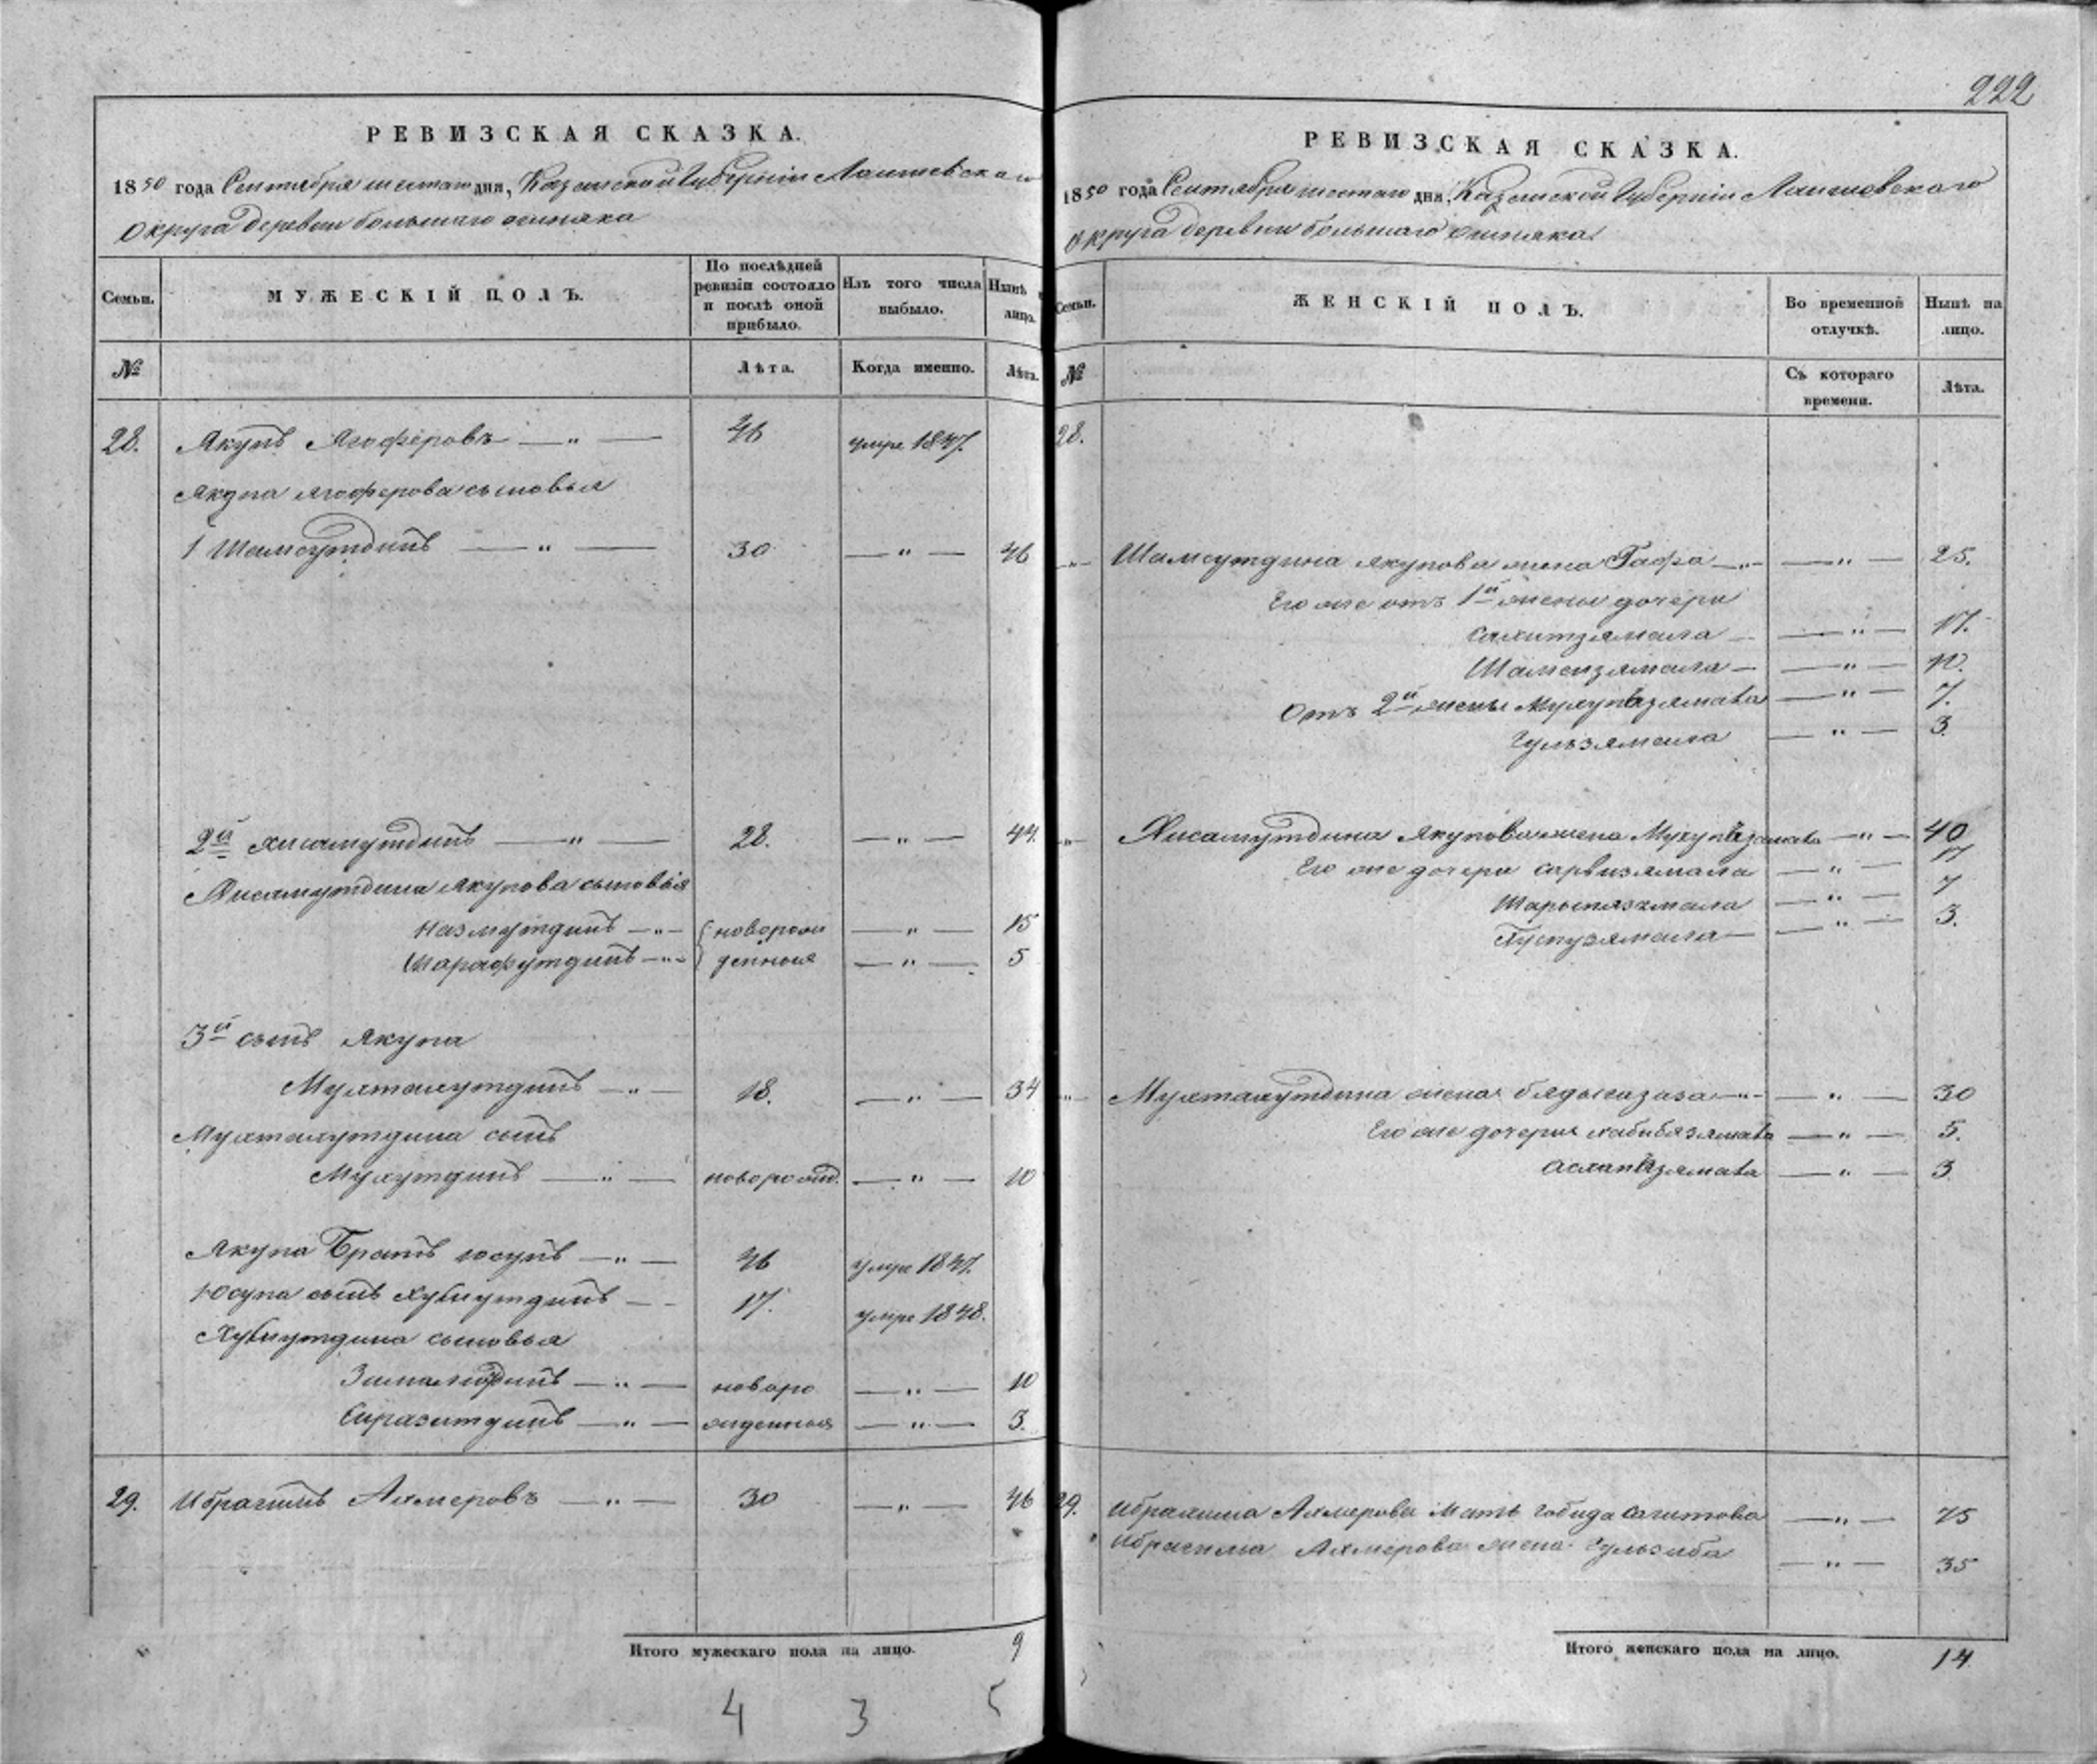 РЕВИЗСКАЯ СКАЗКА.
1850 года Сентября шестаго дня, Казанской Губернiи Лаишевскаго
округа деревни большаго ошняка
Семьи.
МУЖЕСКIЙ ПОЛЪ.
По послѣдней ревизiи состояло и послѣ оной прибыло.
Изъ того числа выбыло.
Нынѣ лицо.
№
Лѣта.
Когда именно.
Лѣта.
28. Якупъ Ягоферовъ — " — 46 умре 1847.
Якупа Ягоферова сыновья
1 Шамсутдинъ — " — 30 — " — 46
2й хисамутдинъ — " — 28. — " — 44
Хисамутдина Якупова сыновья
Назмутдинъ — " — новорож — " — 15
Шарафутдинъ — " — денныя — " — 5
3й сынъ Якупа
Мухтахутдинъ — " — 18. — " — 34
Мухтахутдина сынъ
Мухутдинъ — " — новорожд. — " — 10
Якупа Братъ юсупъ — " — 46 умре 1847.
Юсупа сынъ Хубнутдинъ — 17. умре 1848.
Хубнутдина сыновья
Зимамутдинъ — " — новоро — " — 10
Сиразитдинъ — " — жденныя — " — 3.
29. Ибрагимъ Ахмеровъ — " — 30 — " — 46
Итого мужескаго пола на лицо. 9
4 3 5
222
РЕВИЗСКАЯ СКАЗКА.
1850 года Сентября шестаго дня, Казанской Губернiи Лаишевскаго
округа деревни большаго ошняка.
Семьи.
ЖЕНСКIЙ ПОЛЪ.
Во временной отлучкѣ.
Нынѣ на лицо.
№
Съ котораго времени.
Лѣта.
28.
" Шамсутдина якупова жена Гафра — " — — " — 25.
Его же отъ 1й жены дочери
сахитзямала — " — 17.
Шамсизямала — — " — 10.
Отъ 2й жены Мухупзямала — " — 7.
Гульзямала — " — 3.
" Хисамутдина Якупова жена Мухупзямала — " — 40
Его же дочери сарвизямала — " — 17
Шарыпязямала — " — 7
— " — 3.
" Мухтахутдина жена бядыгизаза — " — — " — 30
Его же дочери хабибязямала — " — 5.
аслапзямала — " — 3
29. Ибрагима Ахмерова Мать Гобида Сагитова — " — 75
Ибрагима Ахмерова жена Гульзиба — " — 35
Итого женскаго пола на лицо. 14